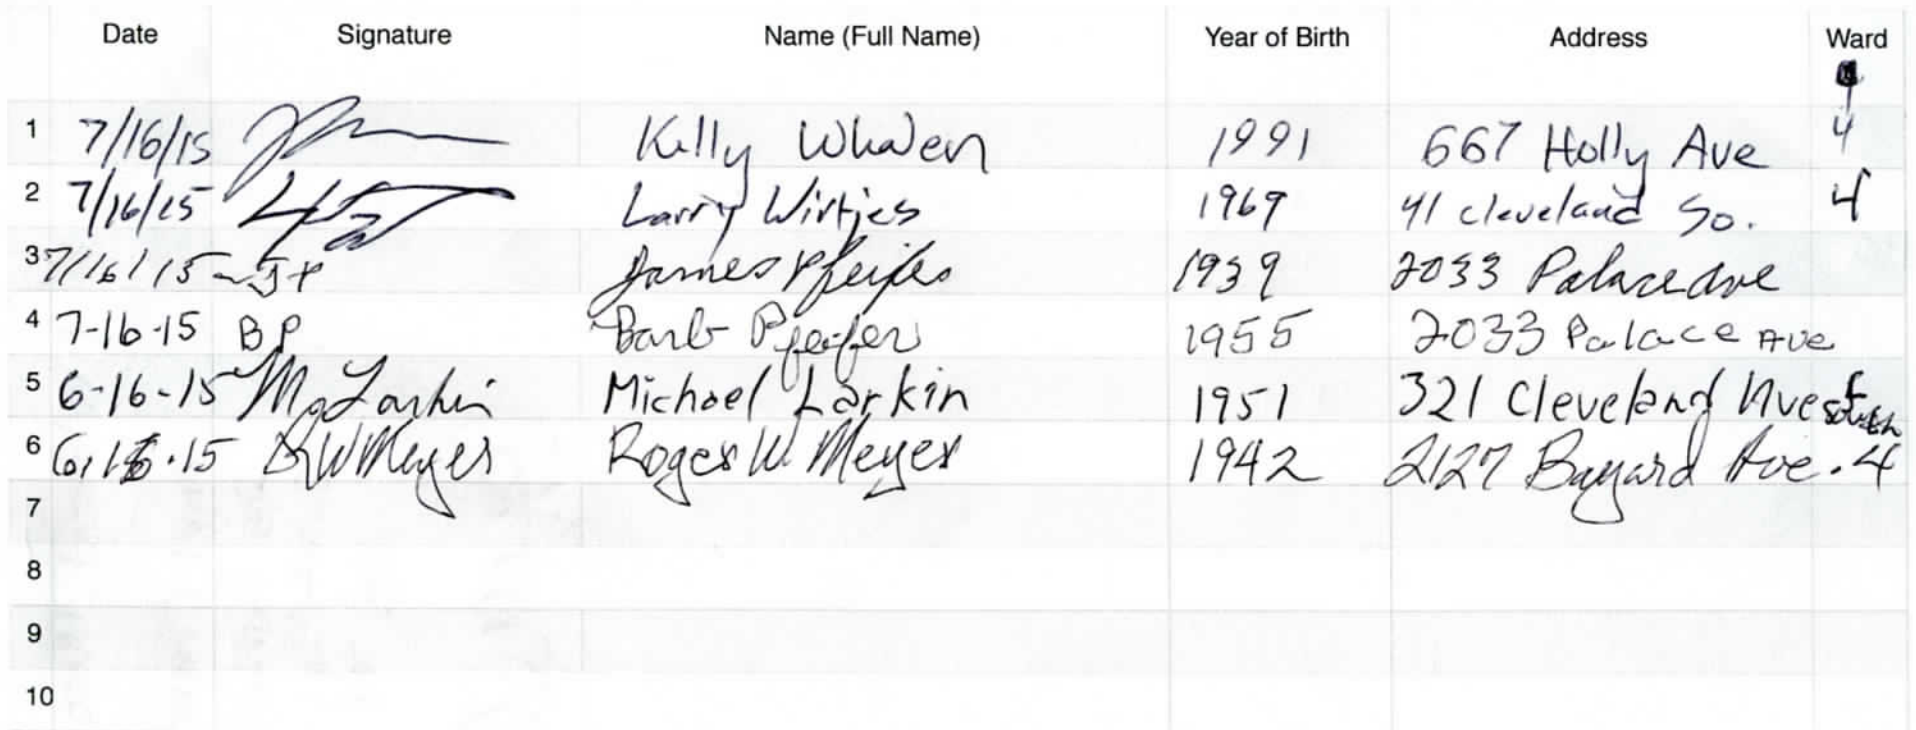 Date Signature Name (Full Name) Year of Birth Address Ward
1 7/16/15 Kelly Whalen 1991 667 Holly Ave 4
2 7/16/15 Larry Wirtjes 1969 41 cleveland So. 4
3 7/16/15 JP James Pfeifer 1939 2033 Palace Ave
4 7-16-15 BP Barb Pfeifer 1955 2033 Palace Ave
5 6-16-15 M Larkin Michael Larkin 1951 321 Cleveland Ave South
6 RW Meyer Roger W. Meyer 1942 2127 Bayard Ave. 4
7
8
9
10